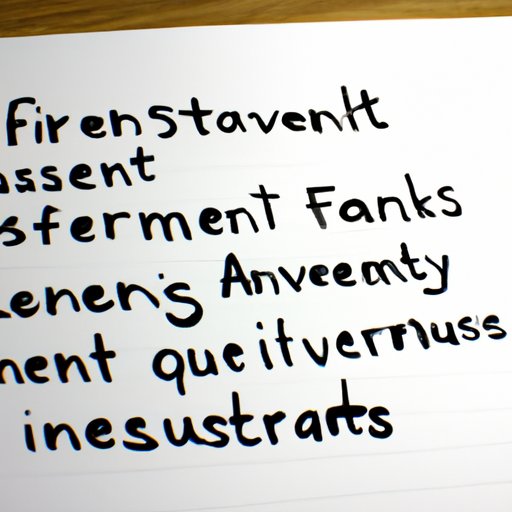 Firenstavenlt
assent
sferment Fanks
Lenen's Anveemty
ment queitvermuss
inesustrarts